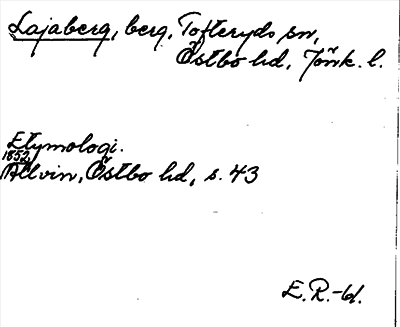 Lajaberg, berg, Tofteryds sn,
Östbo hd, Jönk. l.
Etymologi.
1852
Allvin, Östbo hd, s. 43
E. R.-bl.